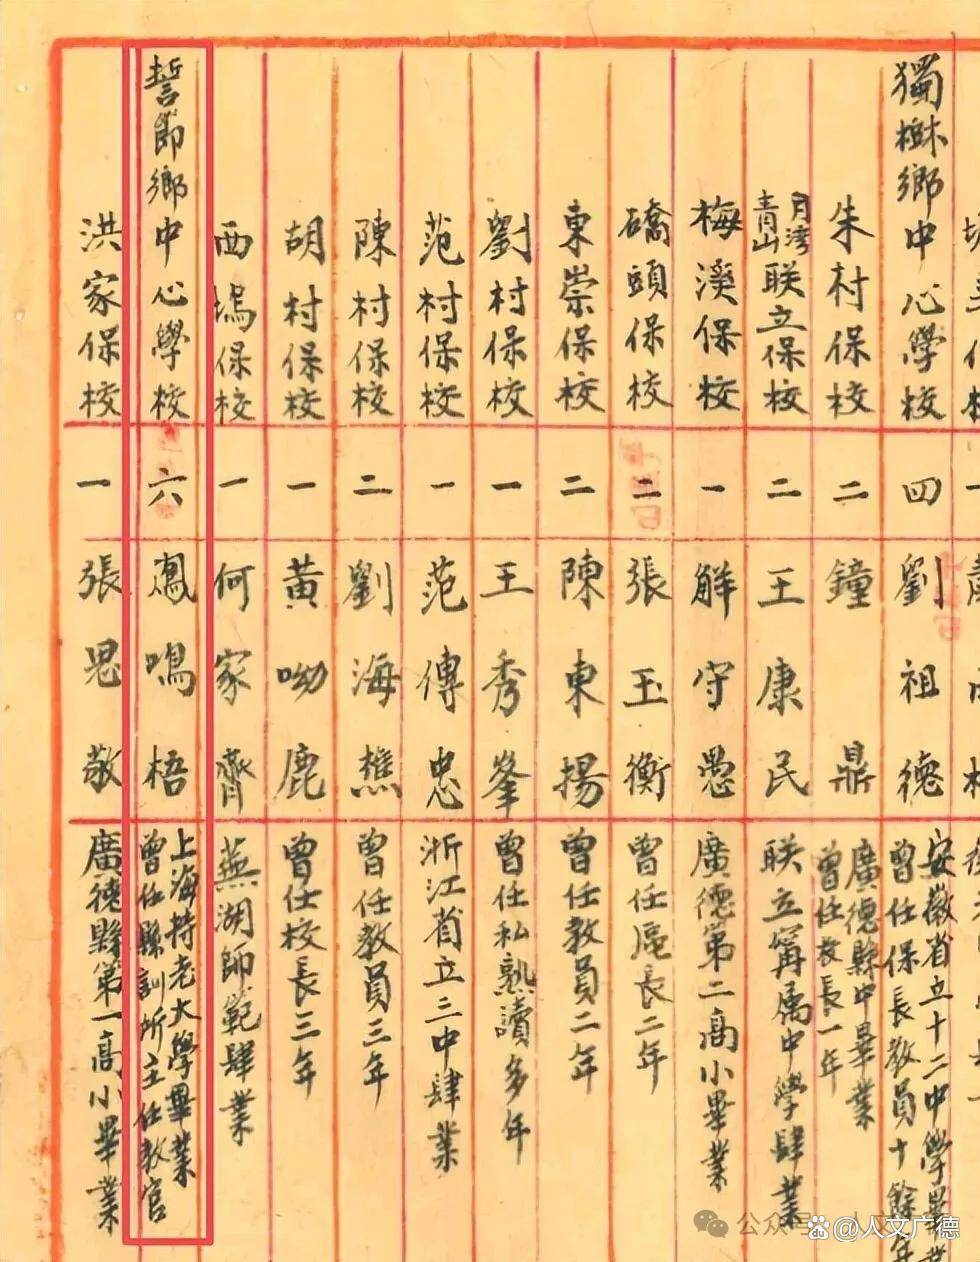 獨樹鄉中心學校
四
劉祖德
安徽省立十二中學畢業
曾任保長教員十餘年
朱村保校
二
鐘鼎
廣德縣中畢業
曾任校長一年
月灣
青山
联立保校
二
王康民
联立寗属中學肆業
梅溪保校
一
解守愚
廣德第二高小畢業
礄頭保校
二
張玉衡
曾任區長二年
東崇保校
二
陳東揚
曾任教員二年
劉村保校
一
王秀峯
曾任私熟讀多年
范村保校
一
范傳忠
浙江省立三中肆業
陳村保校
二
劉海樵
曾任教員三年
胡村保校
一
黃呦鹿
曾任校長三年
西塢保校
一
何家齊
蕪湖師範肆業
誓節鄉中心學校
六
鳳鳴梧
上海持老大學畢業
曾任縣訓所主任教官
洪家保校
一
張思敬
廣德縣第一高小畢業
公众号·人文广德
@人文广德